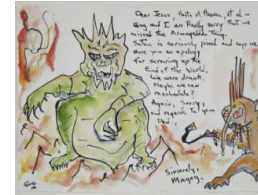 Dear Jesus, Hosts of Heaven, et al -
Gog and I are Really sorry that we
missed the Armageddon Thing.
Satan is seriously pissed and says we
owe you an apology
for screwing up the
End of the World,
We were drunk.
Maybe we can
reschedule?
Again, Sorry,
and regards to your
Dad.
Sincerely,
Magog.